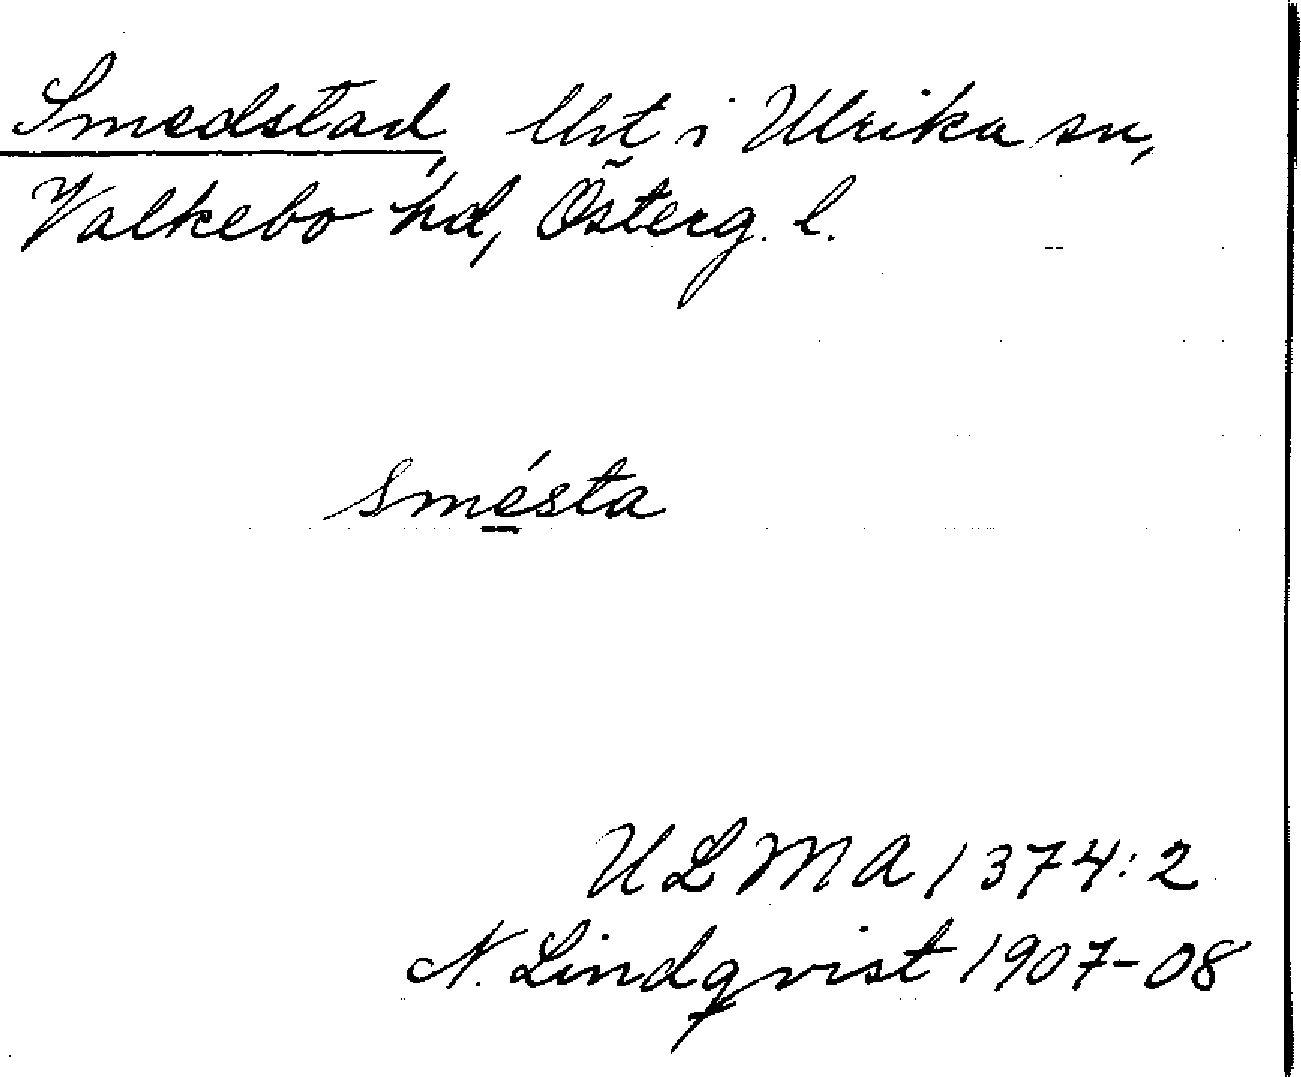 Smedstad, Urt i Ulrika sn,
Valkebo hd, Österg. l.
smésta
ULMA 1374:2
N. Lindqvist 1907-08